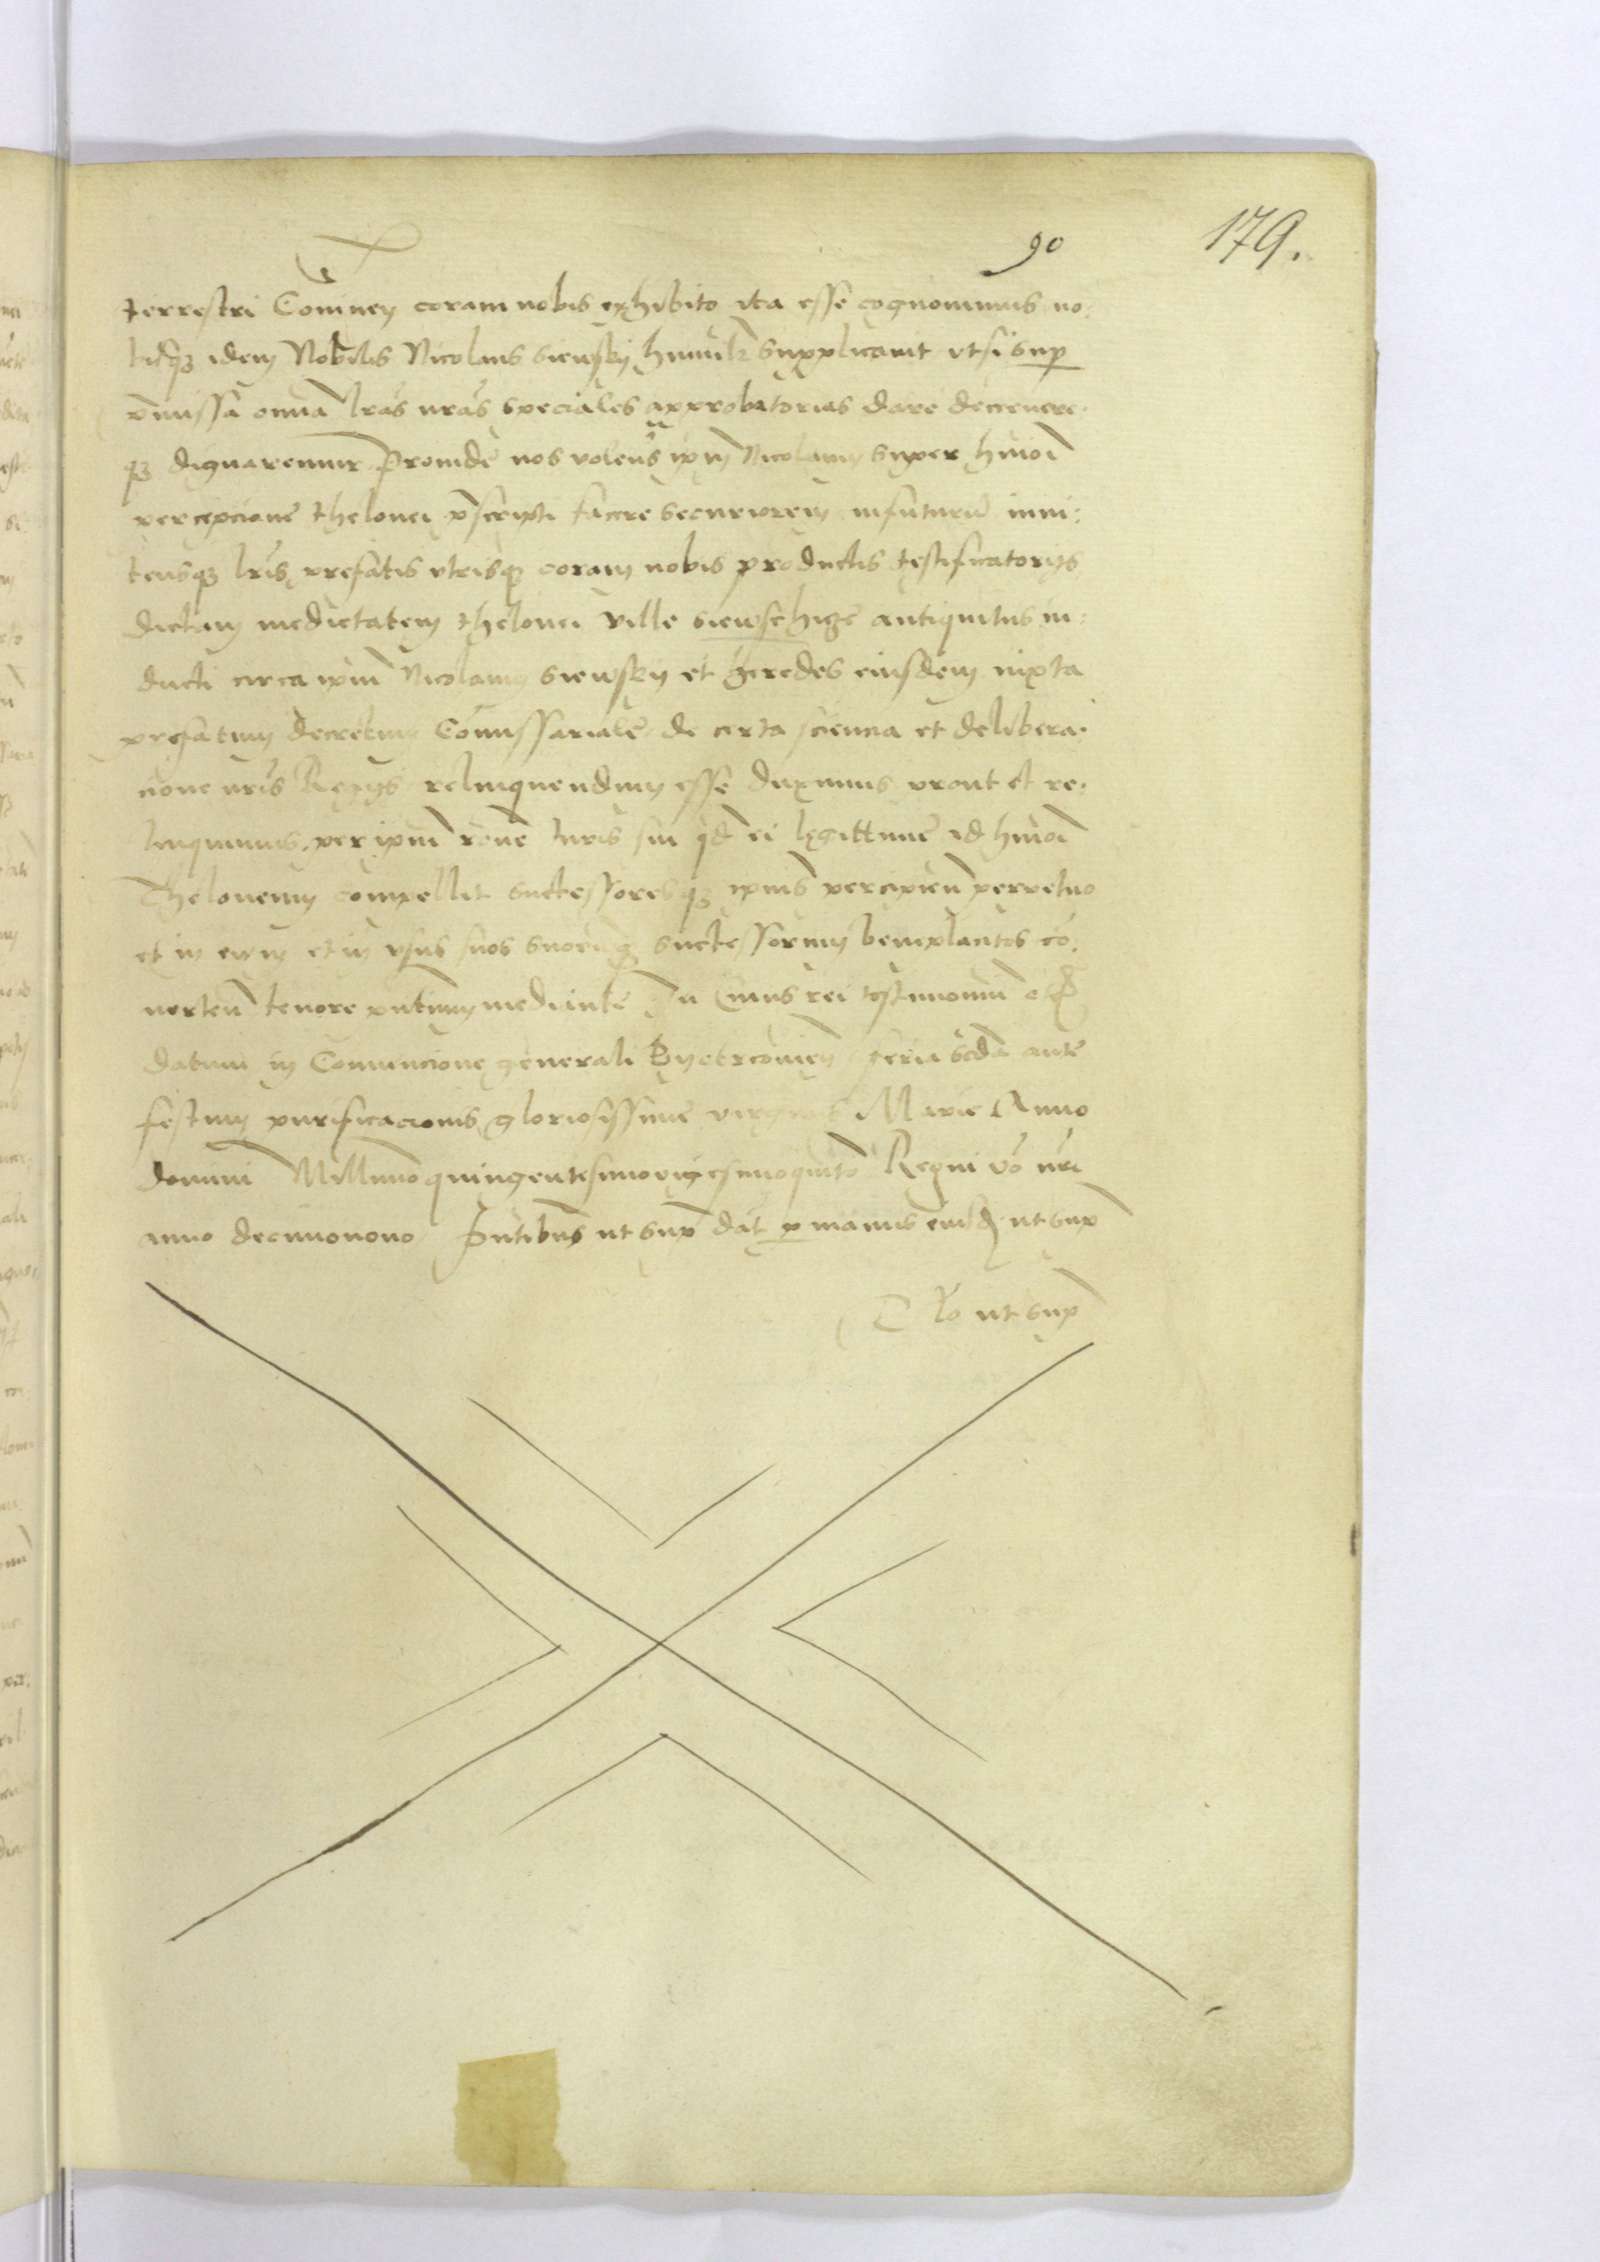 90
179.
terrestri Coninen coram nobis exhibito ita esse cognovimus no:
bisq3 idem Nobilis Nicolaus siewsky humilr supplicavit ut si sup
pmissa omnia lras nras speciales approbatorias dare decernere.
q3 dignaremur Proinde nos volens ipm Nicolaum super hmoi
percepcione thelonei pscripti facere securiorem infuturu inni:
tensq3 lris prefatis utrisq3 coram nobis productis testificatorys
dictam medietatem thelonei ville siewsehize antiquitus in:
ducti circa ipm Nicolaum siewsky et heredes eiusdem iuxta
prefatum decretum Comissariale de certa sciencia et delibera.
cione nris Regys relinquendum esse duximus prout et re.
linquimus. per ipm rone Iuris sui qd ei legittime ad hmoi
Theloneum compellit successoresq3 ipius percipien perpetuo
et in evum et in usus suos suorumq3 successorum beneplacitos co.
verten tenore pntium mediante In Cuius rei testimonium etc
datum in Convencione generali Pyetrcovien feria scda ante
festum purificacionis gloriosissime virginis Marie Anno
domini Millmo quingentesimo vigesimoquinto Regni vo nri
anno decimonono Pntibus ut sup dat p manus eiusd ut sup
Rlo ut sup